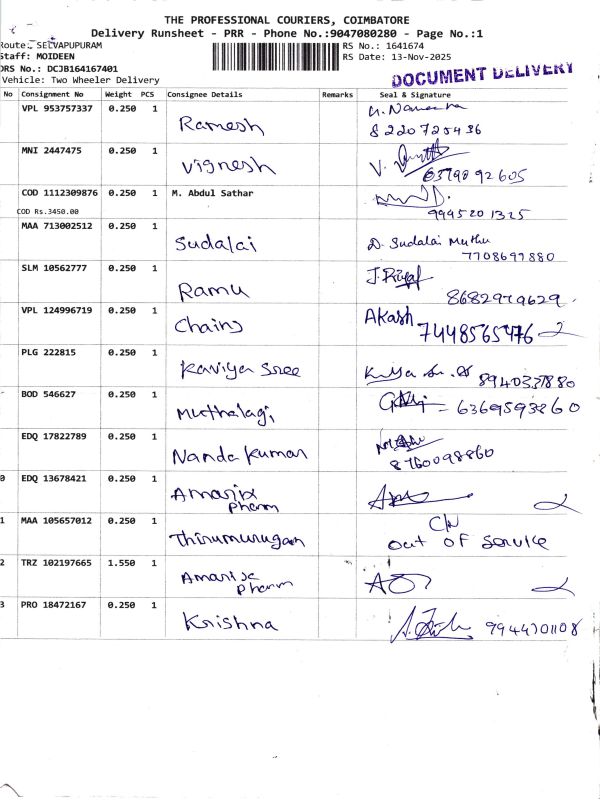 THE PROFESSIONAL COURIERS, COIMBATORE
Delivery Runsheet - PRR - Phone No.:9047080280 - Page No.:1
Route: SELVAPUPURAM RS No.: 1641674
Staff: MOIDEEN RS Date: 13-Nov-2025
DRS No.: DCJB164167401
DOCUMENT DELIVERY
Vehicle: Two Wheeler Delivery
No Consignment No Weight PCS Consignee Details Remarks Seal & Signature
VPL 953757337 0.250 1 Ramesh
8220725436
MNI 2447475 0.250 1 Vignesh
6379092605
COD 1112309876 0.250 1 M. Abdul Sathar
COD Rs.3450.00 9945201325
MAA 713002512 0.250 1 Sudalai D. Sudalai Muthu
7708697880
SLM 10562777 0.250 1 Ramu
8682979629
VPL 124996719 0.250 1 Chains Akash
7448565476
PLG 222815 0.250 1 Kaviya Sree 8940337880
BOD 546627 0.250 1 Muthalagi 6369593260
EDQ 17822789 0.250 1 Nanda Kumar
8760098860
0 EDQ 13678421 0.250 1 Amarix
Pharm
1 MAA 105657012 0.250 1 Thirumurugan C/N
out OF Service
2 TRZ 102197665 1.550 1 Amarix
Pharm
3 PRO 18472167 0.250 1 Krishna 9944701108